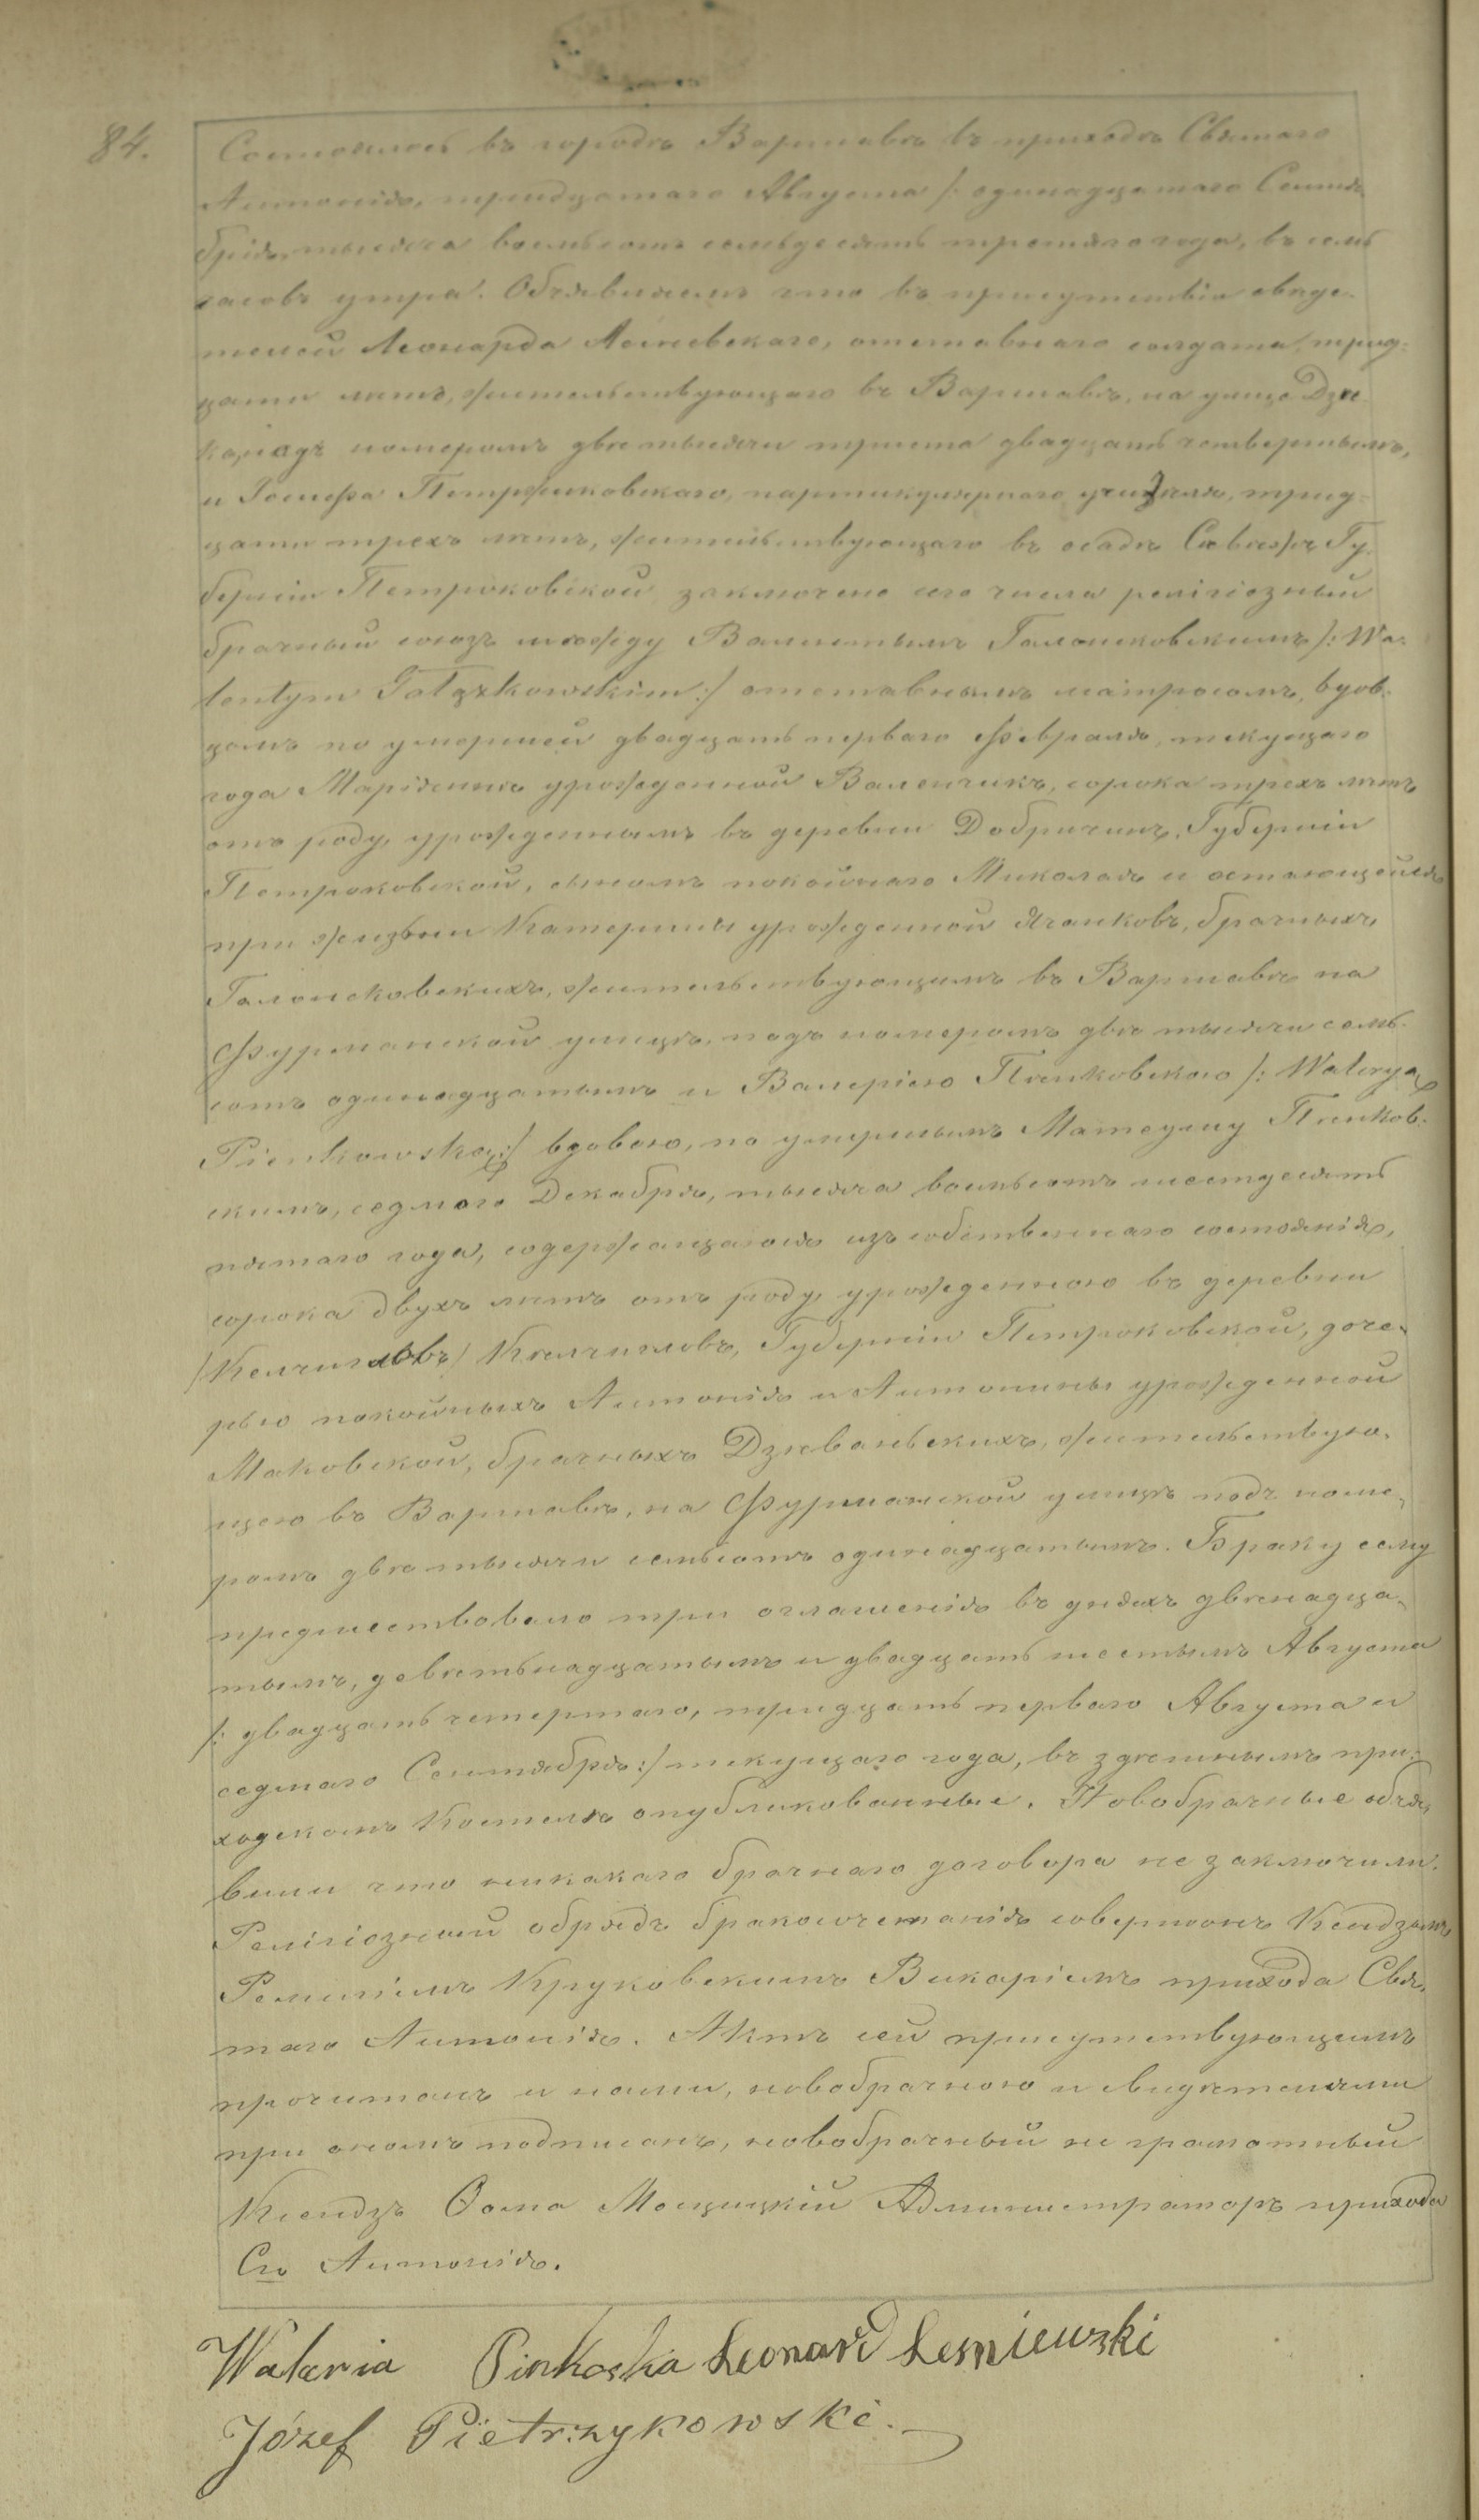 84.
Состоялось въ городѣ Варшавѣ въ приходѣ Святаго
Антонія, тридцатаго Августа /: одинадцатаго Сентя-
брія, тысяча восемьсотъ семьдесятъ третяго года, въ семь
часовъ утра. Объявляемъ что въ присутствіи свиде-
телей Леонарда Лесневскаго, отставнаго солдата, трид-
цати лѣтъ, жительствующаго въ Варшавѣ, на улице Дзи-
ка, надъ номеромъ две тысячи триста двадцать четвертымъ,
и Іосифа Петржиковскаго, партикулярнаго учителя, трид-
цати трехъ лѣтъ, жительствующаго въ осадѣ Гу-
берніи Петроковской заключено сего числа религіозный
брачный союзъ между Валентымъ Галонзковскимъ /: Wa-
lentym Gałązkowskim :/ отставнымъ матросомъ, вдов-
цомъ по умершей двадцать перваго Февраля, текущаго
года Маріаннѣ урожденной Валенчикъ, сорока трехъ лѣтъ
отъ роду, урожденнымъ въ деревни Добричинъ, Губерніи
Петроковской, сыномъ покойнаго Миколая и остающейся
при жизьни Катерины урожденной брачныхъ
Галонсковскихъ, жительствующимъ въ Варшавѣ на
Фурманской улицѣ, подъ номеромъ двѣ тысячи семь-
сотъ одинадцатымъ и Валеріею Пѣнковскою /: Waleryą
Pienkowską :/ вдовою, по умершымъ Матеушу Пѣнков-
скимъ, седмого Декабря, тысяча восемьсотъ шестдесятъ
пятаго года, содержащаюся изъ собственнаго состоянія,
сорока двухъ лѣтъ отъ роду, урожденною въ деревни
/Келчигловъ/ Кѣлчигловъ, Губерніи Петроковской, доче-
рью покойныхъ Антонія и Антонины урожденной
Маковской, брачныхъ Дзѣваньскихъ, жительствую-
щею въ Варшавѣ, на Фурманской улицѣ подъ номе-
ромъ двѣ тысячи семьсотъ одинадцатымъ. Браку сему
предшествовало три оглашенія въ дняхъ двѣнадца-
тымъ, девѣтьнадцатымъ и двадцать шестымъ Августа
/: двадцать четертаго, тридцать перваго Августа и
седмаго Сентября :/ текущаго года, въ здѣшнымъ при-
ходскомъ Костелѣ опубликованные. Новобрачные объя-
вили что никакаго брачнаго договора не заключили.
Религіозный обрядъ бракосочетанія совершонъ Ксендзомъ
Ремигіимъ Круковскимъ Викаріемъ прихода Свя-
таго Антонія. Актъ сей присутствующимъ
прочитанъ и нами, новобрачною и свидѣтелями
при ономъ подписанъ, новобрачный не грамотный
Ксендзъ Ѳома Мощицкій Администраторъ прихода
Сго Антонія.
Waleria Pinkoska Leonard Lesniewski
Józef Pietrzykowski.